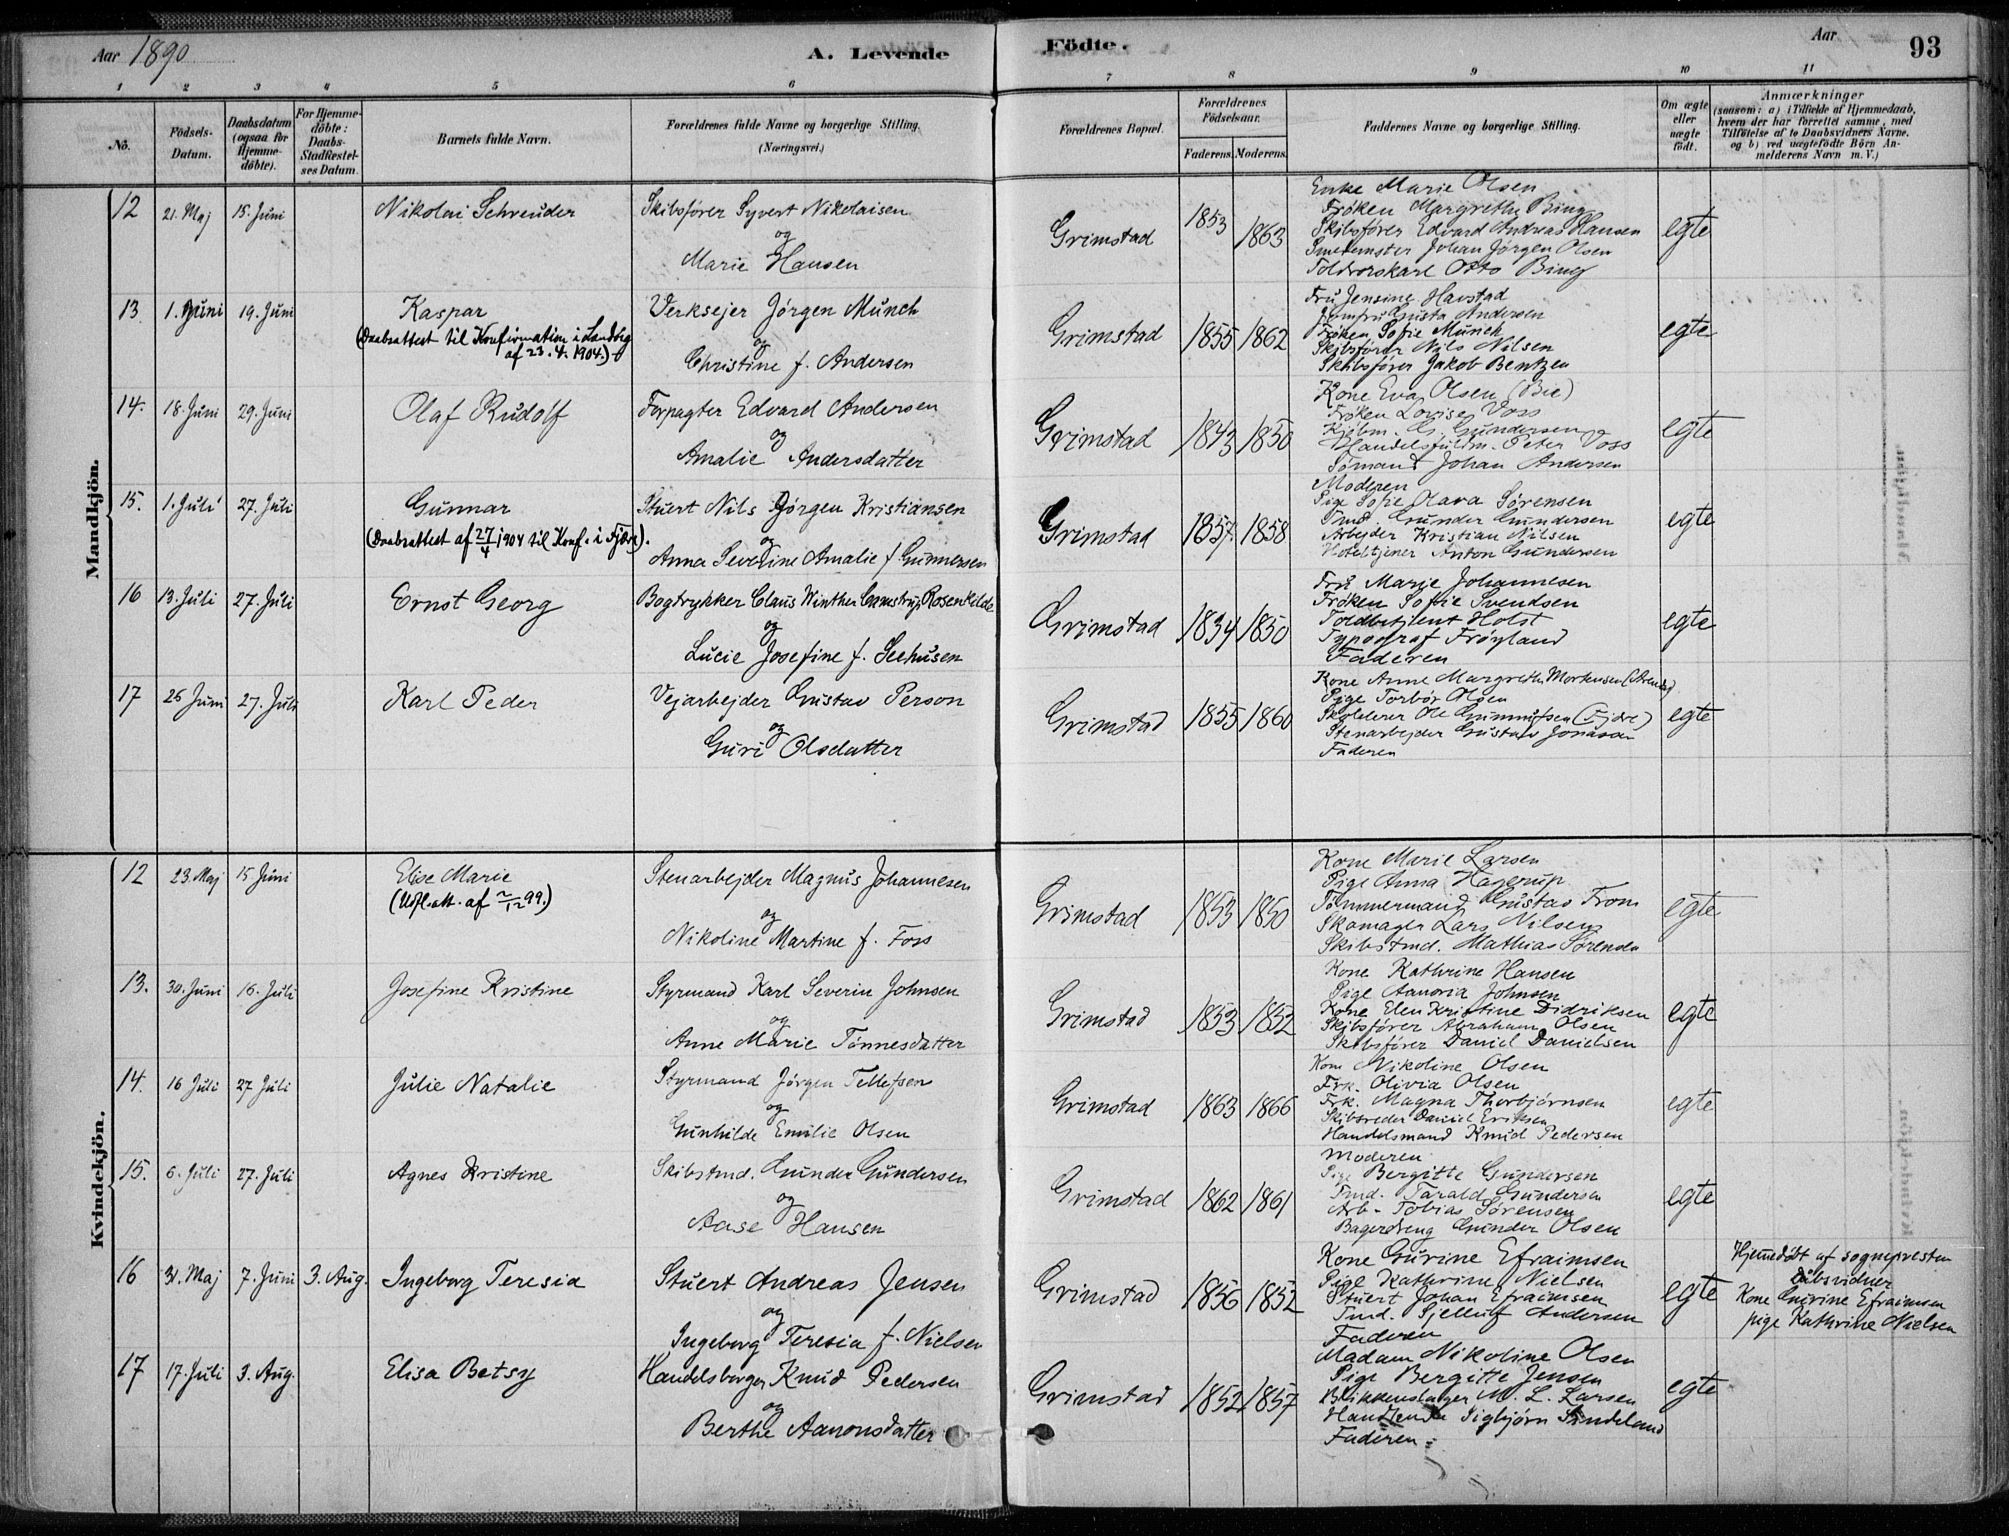 Aar 1890 A. Levende Födte. Aar 93
1 2 3 4 5 6 7 8 9 10 11
No.
Födsels-Datum.
Daabsdatum (ogsaa för Hjemme-döbte).
For Hjemme-döbte: Daabs-Stadfæstel-ses Datum.
Barnets fulde Navn.
Forældrenes fulde Navne og borgerlige Stilling. (Næringsvei.)
Forældrenes Bopæl.
Forældrenes Födselsaar.
Faderens. Moderens.
Faddernes Navne og borgerlige Stilling.
Om ægte eller uægte födt.
Anmærkninger
(saasom: a) i Tilfælde af Hjemmedaab,
hvem der har forrettet samme, med
Tilföielse af to Daabsvidners Navne.
og b) ved uægtefödte Börn An-
melderens Navn m. V.)
Mandkjön.
12 21. Maj 15. Juni Nikolai Schreuder
Skibsfører Syvert Nikolaisen
og
Marie Hansen
Grimstad 1853 1863
Enke Marie Olsen
Frøken Margrethe Bing
Skibsfører Edvard Andreas Hansen
Smedemster Johan Jørgen Olsen
Toldrorskarl Otto Bing
egte
13. 1. Juni 19. Juni Kaspar
(Daabsattest til Konfirmation i Landvig
af 23.4.1904.)
Verksejer Jørgen Münch
og
Christine f. Andersen
Grimstad 1855 1862
Fru Jensine Havstad
Jomfru Gusta Andersen
Frøken Sofie Münch
Skibsfører Nils Nilsen
Skibsfører Jakob Bentzen
egte
14. 18. Juni 29. Juni Olaf Rudolf
Forpagter Edvard Andersen
og
Amalie Andersdatter
Grimstad 1843 1850
Kone Eva Olsen (Bie)
Frøken Lovise Voss
Kjøbm. G. Gundersen
Handelsfuldm. Peter Voss
Sømand Johan Andersen
egte
15. 1. Juli 27. Juli Gunnar
(Daabsattest af 27/4 1904 til Konf. i Fjære).
Stuert Nils Jørgen Kristiansen
og
Anna Severine Amalie f. Gunnersen
Grimstad 1857 1858
Moderen
Pige Sofie Olava Sørensen
Tmd. Gunder Gundersen
Arbejder Kristian Nilsen
Hoteltjener Anton Gundersen
egte
16 13. Juli 27. Juli Ernst Georg
Bogtrykker Claus Winther Camstrup Rosenkilde
og
Lucie Josefine f. Seehusen
Grimstad 1834 1850
Fru Marie Johannesen
Frøken Sofie Svendsen
Toldbetjent Holst
Typograf Frøyland
Faderen
egte
17 26 Juni 27. Juli Karl Peder
Vejarbejder Gustav Person
og
Guri Olsdatter
Grimstad 1855 1860
Kone Anne Margrethe Mortensen (Arendal)
Pige Torbør Olsen
Skolelærer Ole Gunnufsen (Fjære)
Stenarbejder Gustav Jonason
Faderen
egte
Kvindekjön.
12 23. Maj 15 Juni Elise Marie
(Udfl.att. af 2/12 99.)
Stenarbejder Magnus Johannesen
og
Nikoline Martine f. Foss
Grimstad 1853 1850
Kone Marie Larsen
Pige Anna Hagerup
Tømmermand Gustav From
Skomager Lars Nilsen
Skibstmd. Mathias Sørensen
egte
13. 30. Juni 16. Juli Josefine Kristine
Styrmand Karl Severin Johnsen
og
Anne Marie Tønnesdatter
Grimstad 1853 1852
Kone Kathrine Hansen
Pige Aanoria Johnsen
Kone Elen Kristine Didriksen
Skibsfører Abraham Olsen
Skibsfører Daniel Danielsen
egte
14. 16 Juli 27 Juli Julie Natalie
Styrmand Jørgen Tellefsen
og
Gunhilde Emilie Olsen
Grimstad 1863 1866
Kone Nikoline Olsen
Frk. Olivia Olsen
Frk. Magna Thorbjørnsen
Skibsreder Daniel Eriksen
Handelsmand Knud Pedersen
egte
15. 6. Juli 27. Juli Agnes Kristine
Skibstmd. Gunder Gundersen
og
Aase Hansen
Grimstad 1862 1861
Moderen
Pige Bergitte Gundersen
Tmd. Tarald Gundersen
Arb. Tobias Sørensen
Bagerdreng Gunder Olsen
egte
16 31. Maj 7. Juni 3. Aug. Ingeborg Teresia
Stuert Andreas Jensen
og
Ingeborg Teresia f. Nielsen
Grimstad 1856 1852
Kone Gurine Efraimsen
Pige Kathrine Nielsen
Stuert Johan Efraimsen
Tmd. Sjelluf Andersen
Faderen
egte
Hjemedøbt af sognepresten
Dåbsvidner
Kone Gurine Efraimsen
pige Kathrine Nielsen
17 17. Juli 3. Aug. Elisa Betsy
Handelsborger Knud Pedersen
og
Berthe Aanonsdatter
Grimstad 1852 1857
Madam Nikoline Olsen
Pige Bergitte Jensen
Blikkenslager M. L. Larsen
Handlende Sigbjørn Sindeland
Faderen
egte